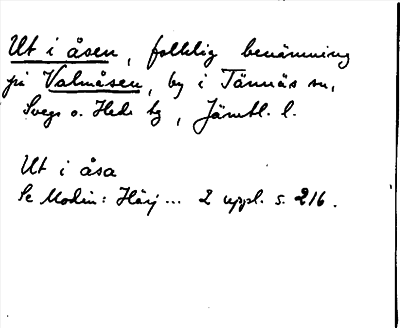 Ut i åsen, folklig benämning
på Valmåsen, by i Tännäs sn,
Svegs o. Heds tg, Jämtl. l.
Ut i åsa
Se Modin: Härj... 2 uppl. s. 216.